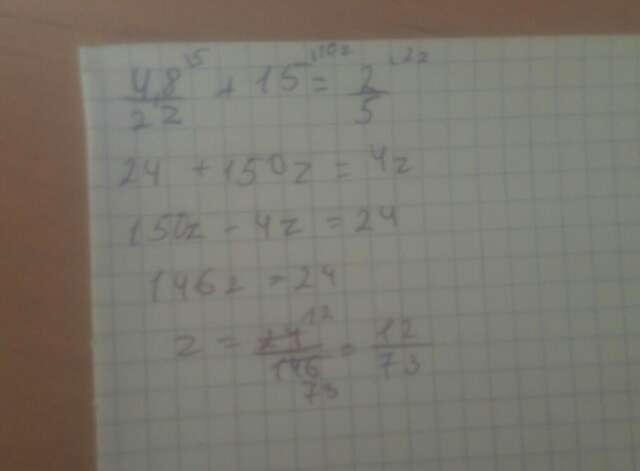 48/2z \5 + 15 \10z = 2/5 \2z
24 + 150z = 4z
150z - 4z = 24
146z = 24
z = 24/146 12 73 = 12/73